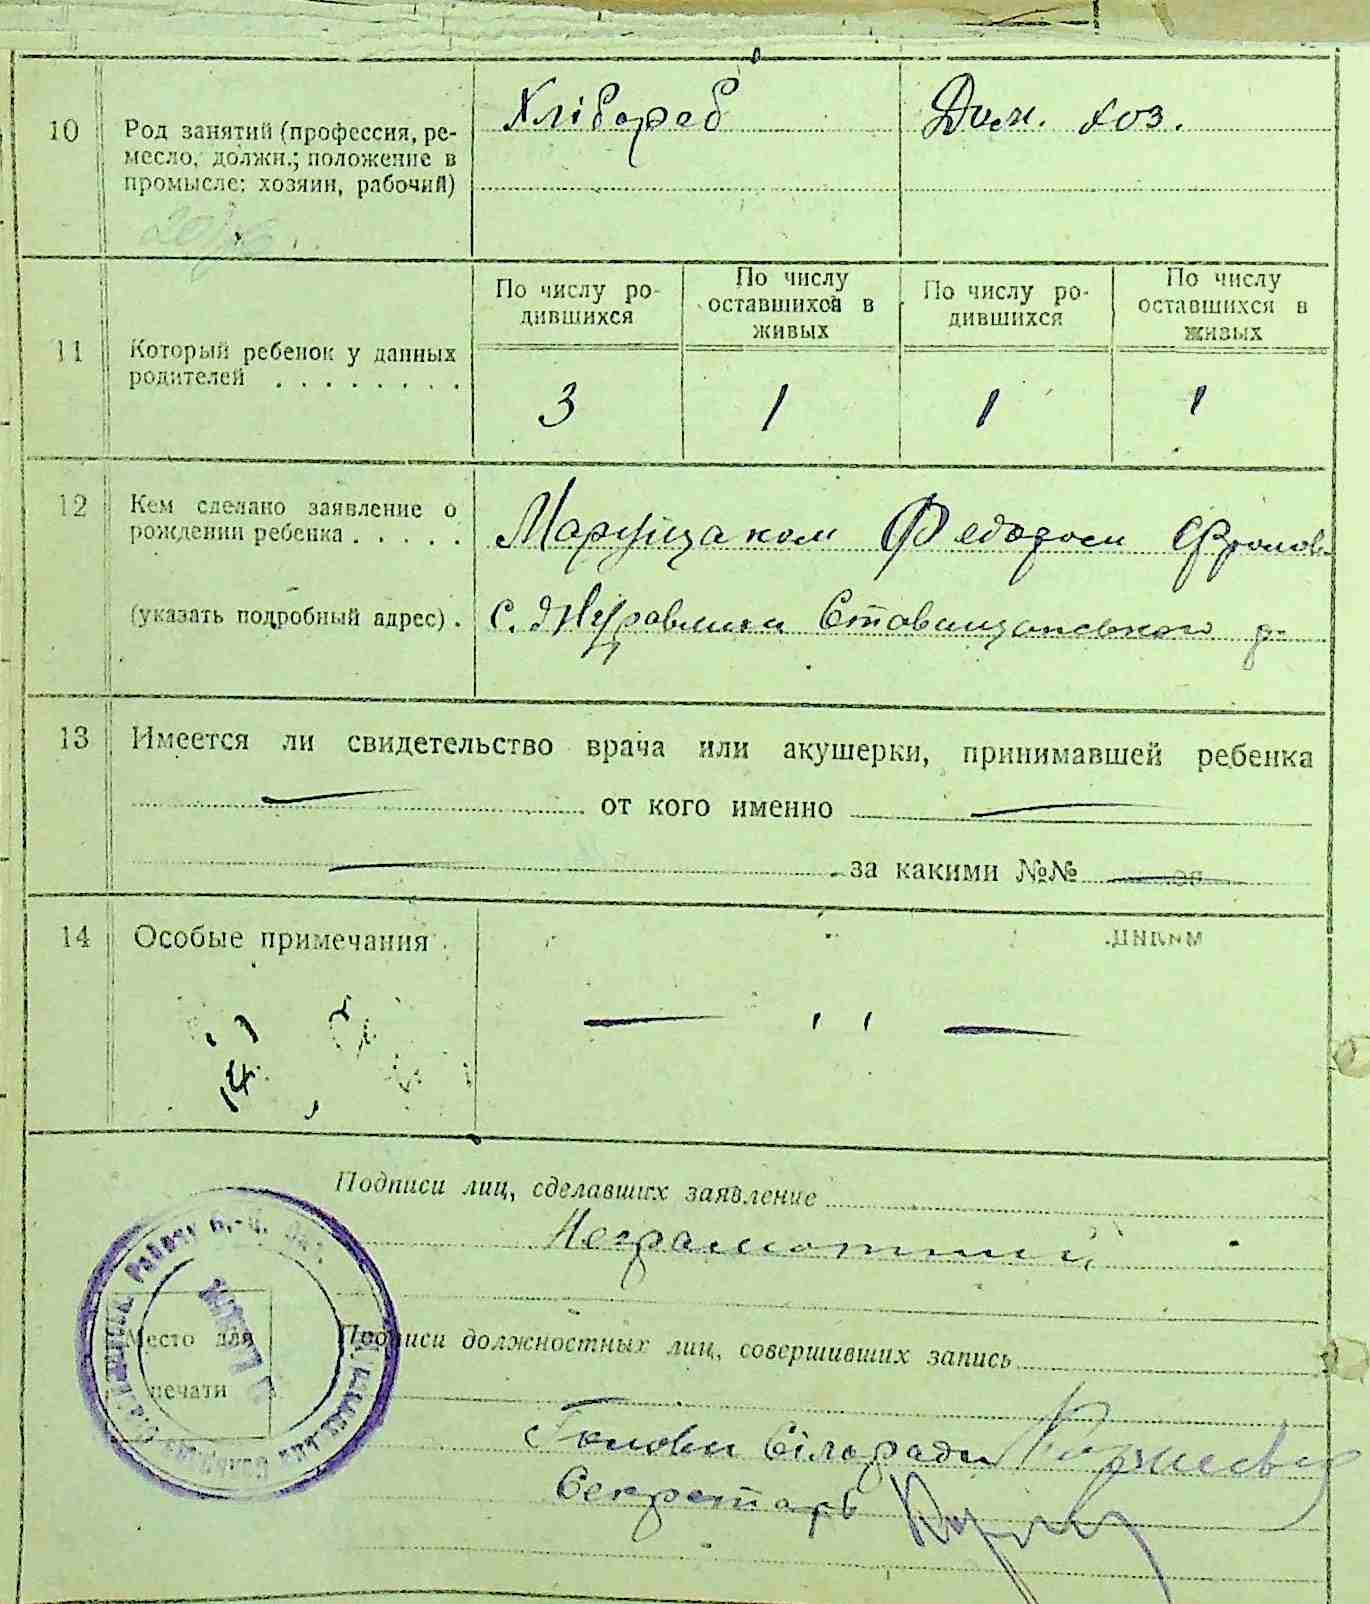 10
Род занятий (профессия, ре-
месло, должн.; положение в
промысле: хозяин, рабочий)
Хлібороб
Дом. хоз.
11
Который ребенок у данных
родителей . . . . . . . .
По числу ро-
дившихся
По числу
оставшихся в
живых
По числу ро-
дившихся
По числу
оставшихся в
живых
3 1 1 1
12
Кем сделано заявление о
рождении ребенка . . . . .
Марущаком Федором Фролов.
(указать подробный адрес) .
с. Журавлиха Ставищанського р.
13
Имеется ли свидетельство врача или акушерки, принимавшей ребенка
— от кого именно —
— за какими №№ —
14
Особые примечания
— ,, —
Подписи лиц, сделавших заявление
Неграмотний
Место для
печати
Подписи должностных лиц, совершивших запись
Голова Сільради
Секретарь